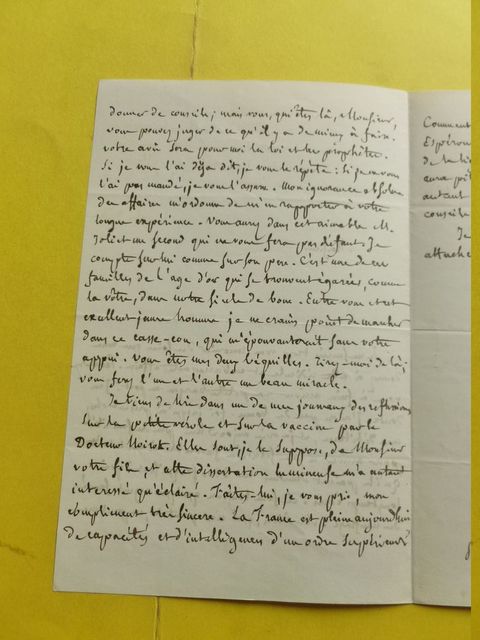 donner de conseils; mais vous, qui êtes là, Monsieur,
vous pouvez juger de ce qu'il y a de mieux à faire.
votre avis sera pour moi la loi et les prophètes.
Si je vous l'ai déja dit, je vous le répète: Si je ne vous
l'ai pas mandé, je vous l'assure. mon ignorance absolue
des affaires m'ordonne de m'en rapporter à votre
longue expérience. Vous aurez dans cet aimable M.
Joli et un second qui ne vous fera pas défaut. Je
compte sur lui comme sur son père. C'est une de ces
familles de l'age d'or qui se trouvent égarées, comme
la vôtre, dans notre siècle de boue. Entre vous et cet
excellent jeune homme je ne crains point de marcher
dans ce casse-cou, qui m'épouvanterait sans votre
appui. Vous êtes mes deux béquilles. Tirez-moi de là;
vous ferez l'un et l'autre un beau miracle.
Je viens de lire dans un de mes journaux des reflexions
sur la petite vérole et sur la vaccine par le
Docteur. Elles sont, je le suppose, de Monsieur
votre fils, et cette dissertation lumineuse m'a autant
interessé qu'éclairé. Faites-lui, je vous prie, mon
compliment très sincere. La France est pleine aujourd'hui
de capacités et d'intelligences d'un ordre supérieur
Comment
Espérons
aura
autant
conseils
Je
attaché